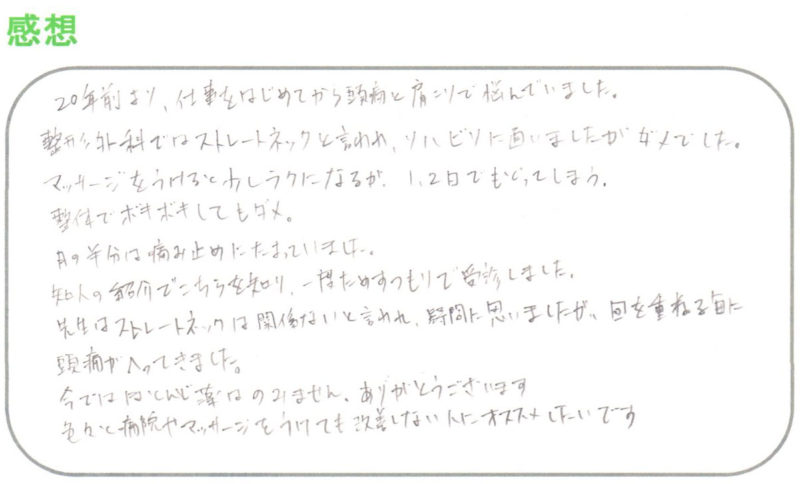 感想
20年前より、仕事をはじめてから頭痛と肩こりで悩んでいました。
整形外科ではストレートネックと言われ、リハビリに通いましたがダメでした。
マッサージをうけると少しラクになるが、1、2日でもどってしまう。
整体でボキボキしてもダメ。
月の半分は痛み止めにたよっていました。
知人の紹介でこちらを知り、一度ためすつもりで受診しました。
先生はストレートネックは関係ないと言われ、疑問に思いましたが、回を重ねる毎に
頭痛がへってきました。
今ではほとんど薬はのみません。ありがとうございます
色々と病院やマッサージをうけても改善しない人にオススメしたいです